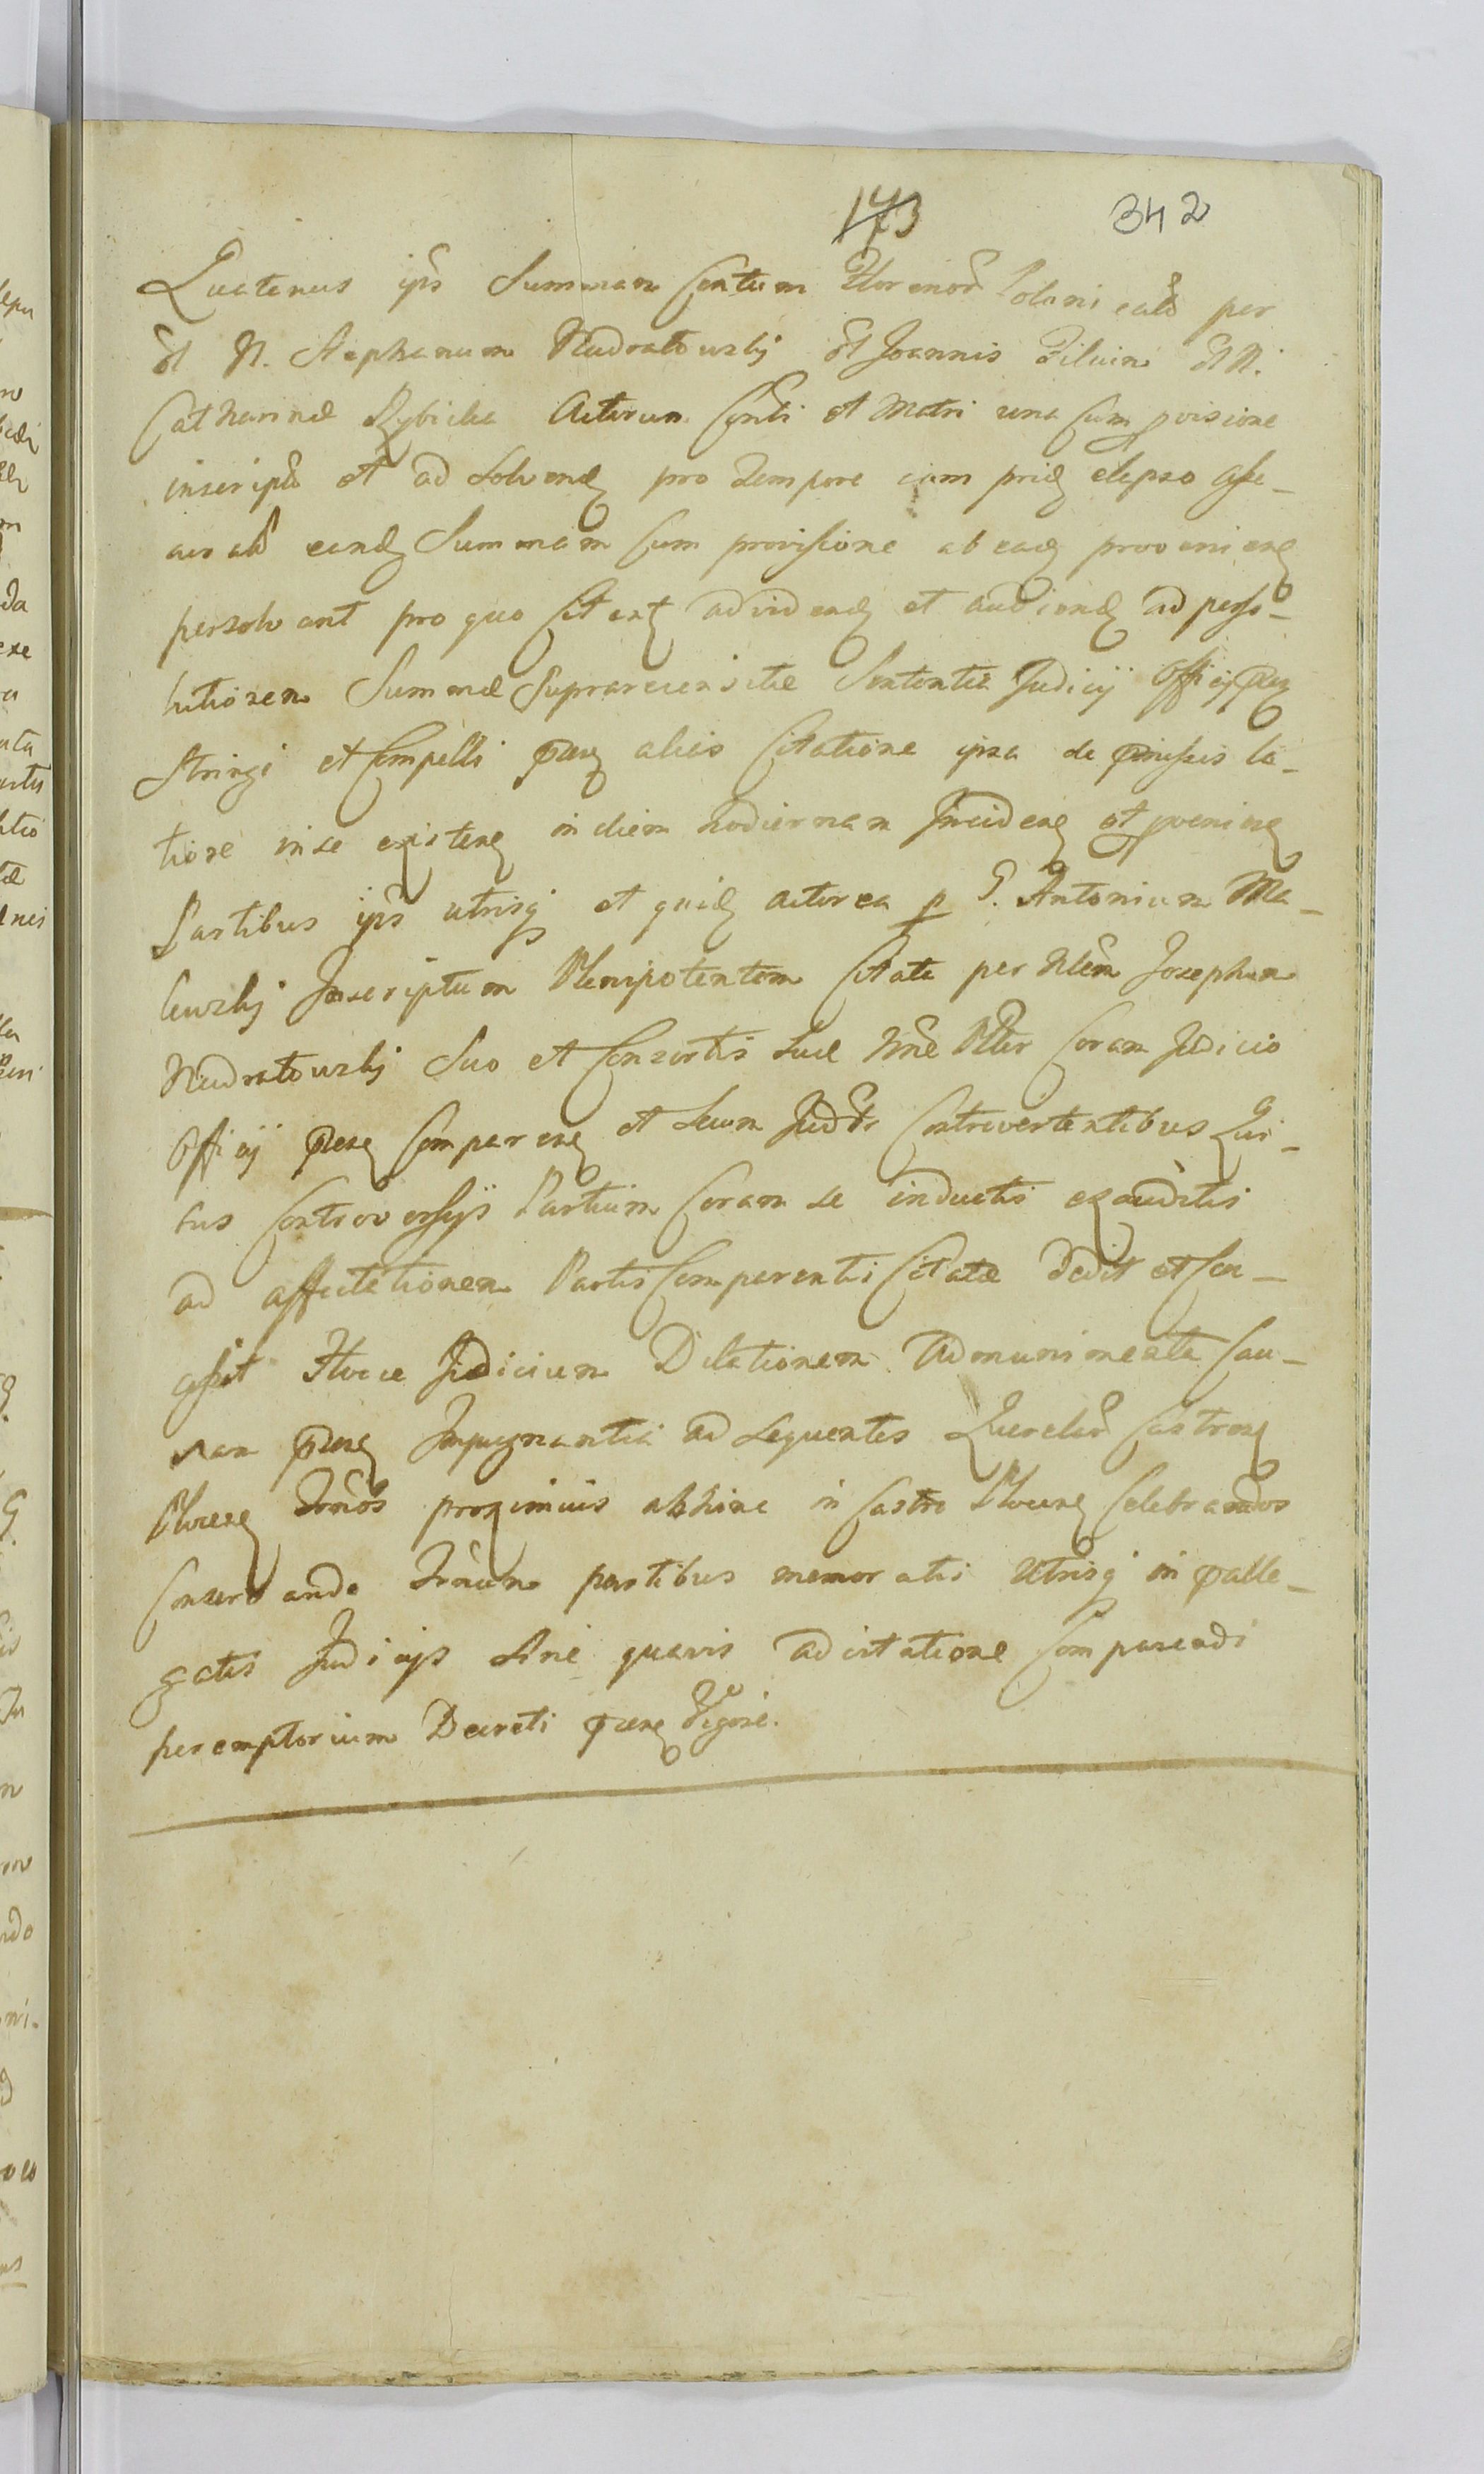 173 342
Quatenus ips Summam Centum Florenor Polonical per
et N. Stephanum Nadratowskj et Joannis Filium et N.
Catharinæ Rybicka Actorum et Matri una Cum pvisione
inscript et ad Solvend pro tempore iam prid elapso Asse-
curat eand Summam Cum provisione ab ead provenien
persolvant pro quo Citant ad vidend et audiend ad perso-
lutionem Summæ Suprarecensitæ Sententia Judicij Officij
stringi et Compelli aliis Citatione ipsa de pmissis la-
tiore in se existen in diem hodiernam Inciden et pvenien
Partibus ips utrisq et quid actorea p G. Antonium Ma-
lewskj Inscriptum Plenipotentem Citata per Josephum
Nadratowskj Suo et Consortis Suæ Coram Judicio
Officij Comparen et Secum Controvertentibus Qui-
bus Controversijs Partium Coram se inductis exauditis
ad affectationem Partis Comparentis Citatæ Dedit et Con-
cessit Hocce Judicium Dilationem Ad munimenta Cau-
sam Impugnantia ad Sequentes Querelar Castren
Plocen proximius abhinc in Castro Plocen Celebrandos
Conservando partibus memoratis Utrisq in palle-
gatis Judicijs Sine quavis adcitatione Comparendi
peremptorium Decreti Vigore.